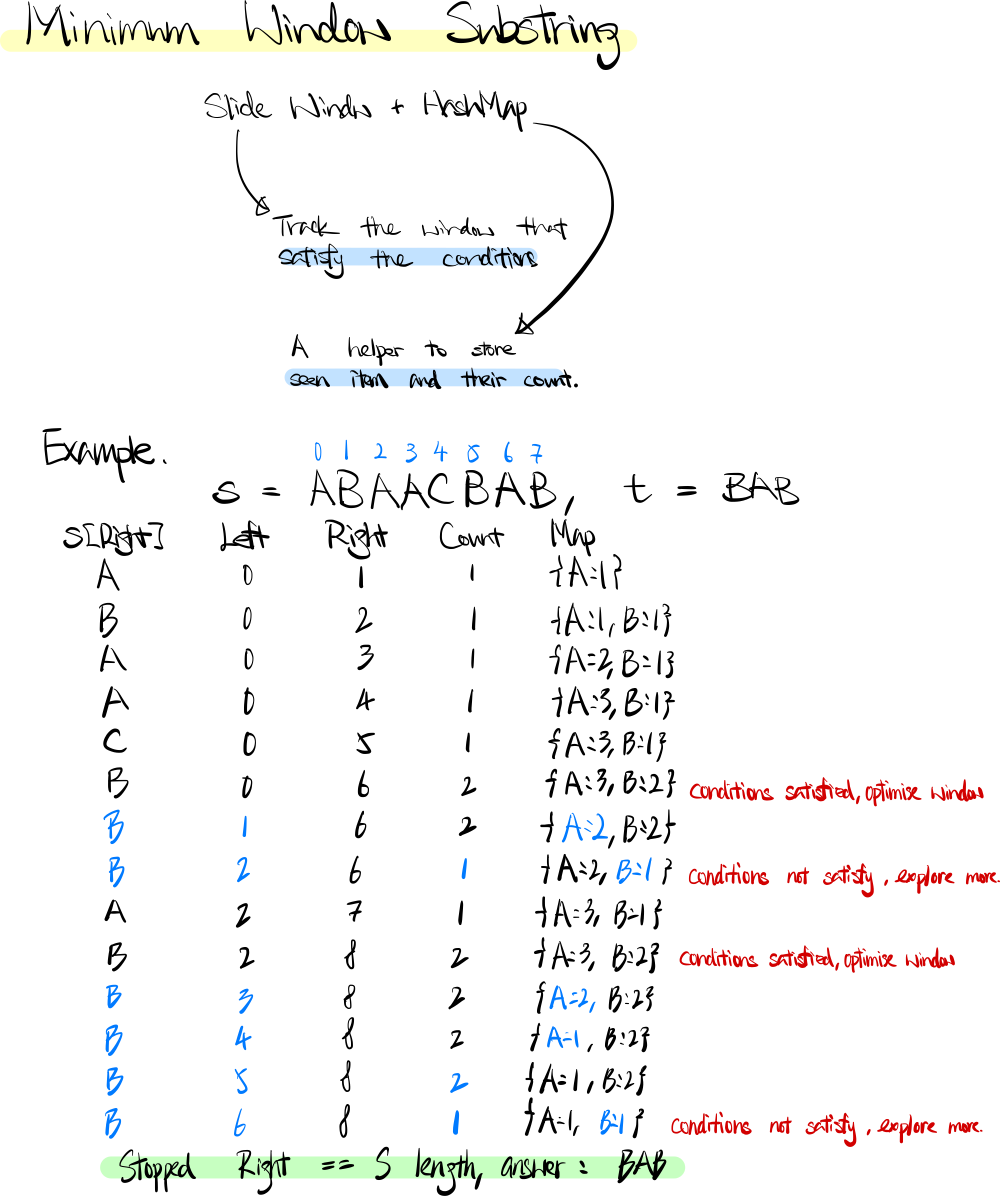 Minimum Window Substring
Slide Window + HashMap
Track the window that
satisfy the conditions
A helper to store
seen item and their count.
Example.
0 1 2 3 4 5 6 7
s = ABAACBAB, t = BAB
S[Right] Left Right Count Map
A 0 1 1 {A:1}
B 0 2 1 {A:1, B:1}
A 0 3 1 {A=2, B:1}
A 0 4 1 {A:3, B:1}
C 0 5 1 {A:3, B:1}
B 0 6 2 {A:3, B:2} conditions satisfied, optimise window
B 1 6 2 {A:2, B:2}
B 2 6 1 {A:2, B:1} conditions not satisfy, explore more.
A 2 7 1 {A:3, B=1}
B 2 8 2 {A:3, B:2} conditions satisfied, optimise window
B 3 8 2 {A=2, B:2}
B 4 8 2 {A=1, B:2}
B 5 8 2 {A=1, B:2}
B 6 8 1 {A=1, B:1} conditions not satisfy, explore more.
Stopped Right == S length, answer: BAB